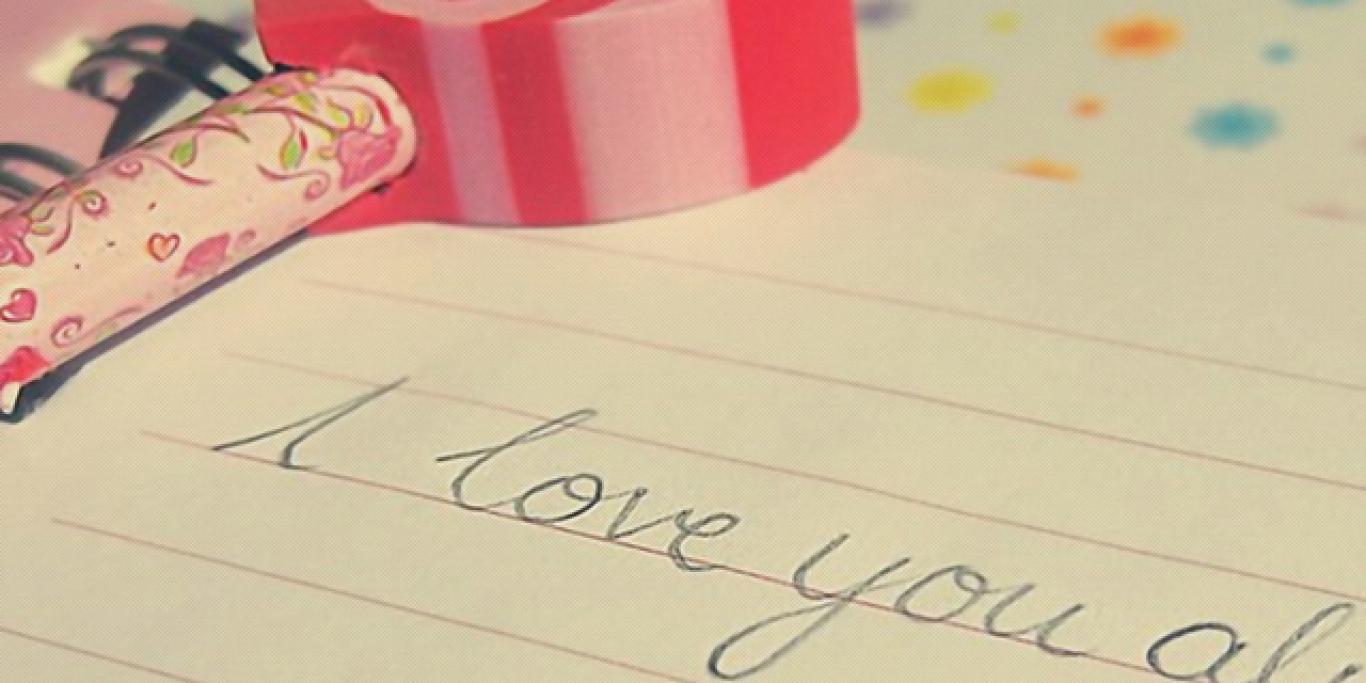 I love you al